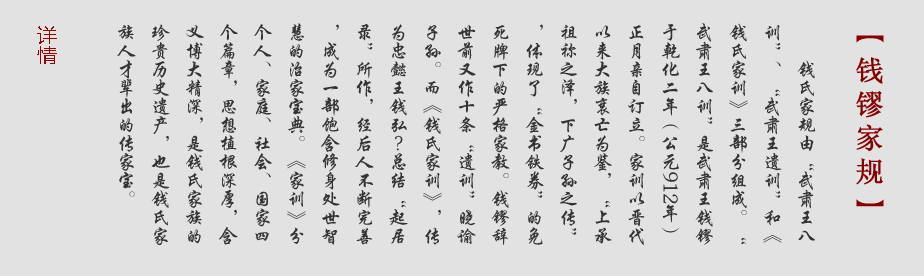 【钱镠家规】
钱氏家规由“武肃王八
训”、“武肃王遗训”和《
钱氏家训》三部分组成。“
武肃王八训”是武肃王钱镠
于乾化二年（公元912年）
正月亲自订立。家训以晋代
以来大族衰亡为鉴，“上承
祖祢之泽，下广子孙之传”
，体现了“金书铁券”的免
死牌下的严格家教。钱镠辞
世前又作十条“遗训”晓谕
子孙。而《钱氏家训》，传
为忠懿王钱弘?总结“起居
录”所作，经后人不断完善
，成为一部饱含修身处世智
慧的治家宝典。《家训》分
个人、家庭、社会、国家四
个篇章，思想植根深厚，含
义博大精深，是钱氏家族的
珍贵历史遗产，也是钱氏家
族人才辈出的传家宝。
详情